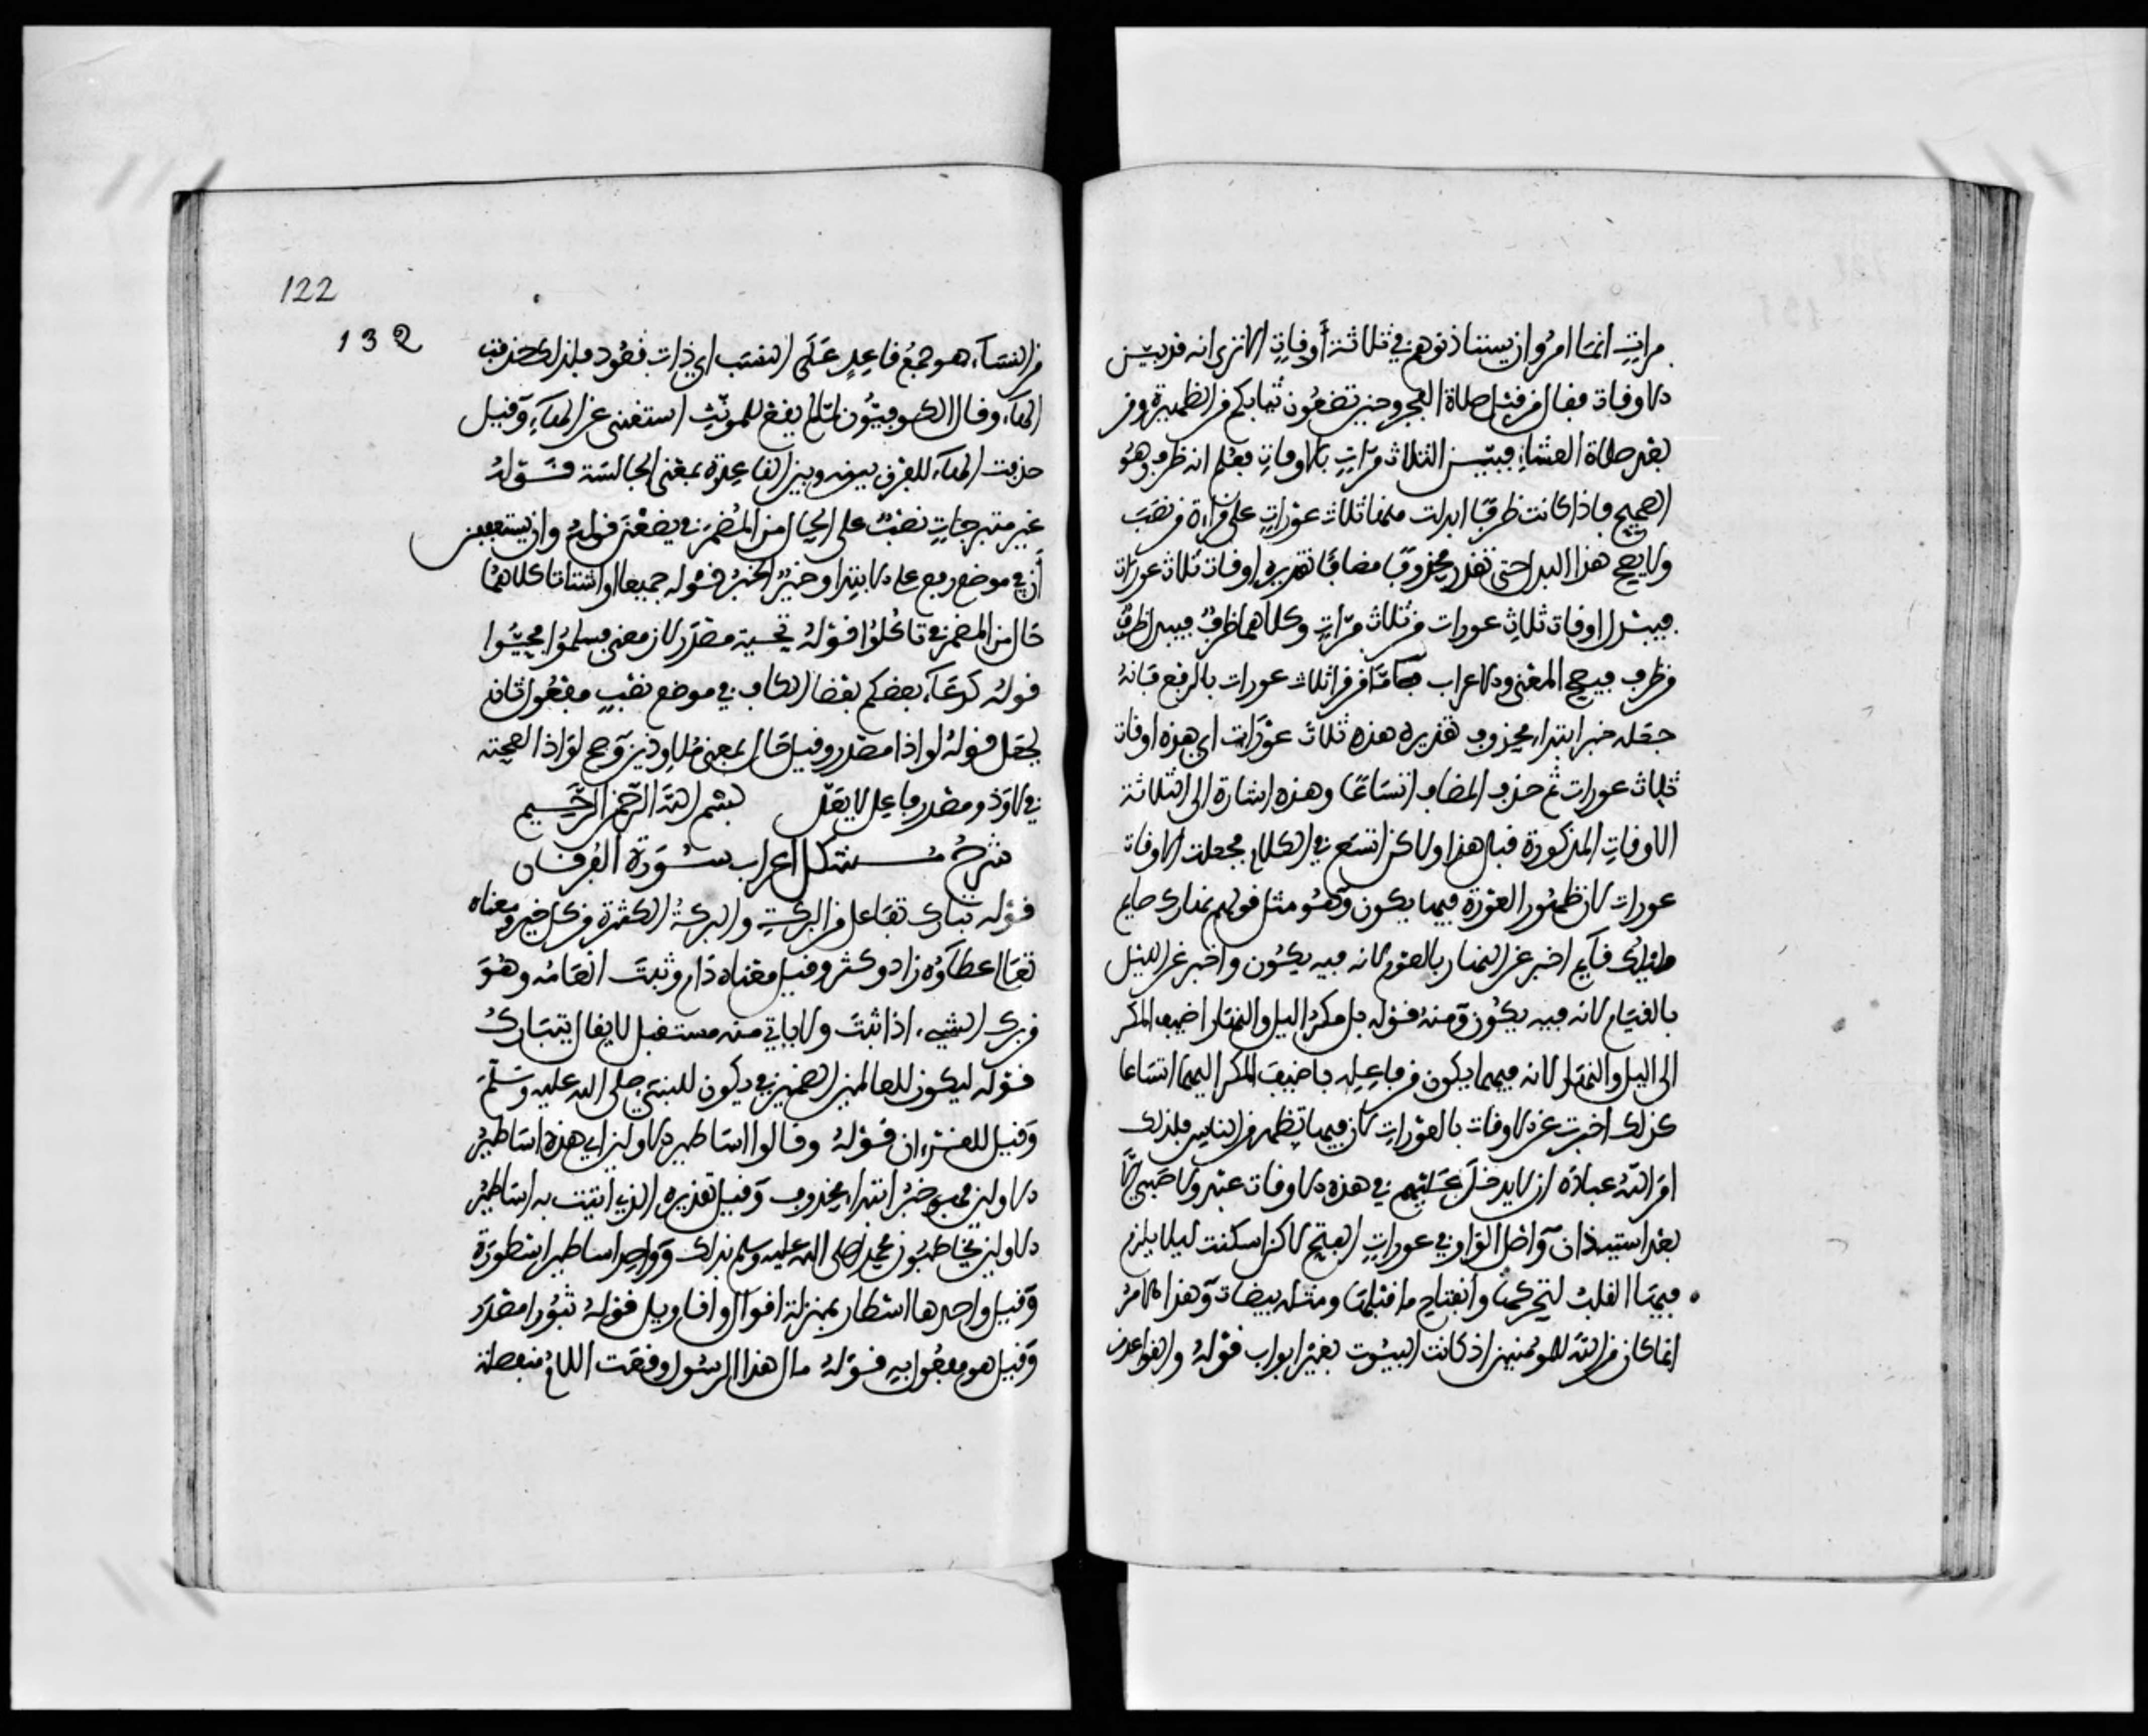 مرات انما امروا ان يستاذنوهم في ثلاثة أوقات الا ترى انه قد بين
الاوقات فقال من قبل صلاة الفجر وحين تضعون ثيابكم من الظهيرة ومن
بعد صلاة العشاء فبين الثلاث مرات بالاوقات فعلم انه ظرف وهو
الصحيح فاذا كانت ظرفا ابدلت منها ثلاث عورات على قراءة من نصب
ولا يصح هذا البدل حتى تقدر محذوفا مضافا تقديره اوقات ثلاث عورات
فيبدل اوقات ثلاث عورات من ثلاث مرات وكلاهما ظرف فيبدل ظرف
من ظرف فيصح المعنى والاعراب فاما من قرا ثلاث عورات بالرفع فانه
جعله خبر ابتداء محذوف تقديره هذه ثلاث عورات اي هذه اوقات
ثلاث عورات ثم حذف المضاف اتساعا وهذه اشارة الى الثلاثة
الاوقات المذكورة قبل هذا ولاكن اتسع في الكلام فجعلت الاوقات
عورات لان ظهور العورة فيها يكون وهو مثل قولهم نهارك صايم
وليلك قايم اخبر عن النهار بالصوم لانه فيه يكون واخبر عن الليل
بالقيام لانه فيه يكون ومنه قوله بل مكر اليل والنهار اضيف المكر
الى اليل والنهار لانه فيهما يكون من فاعله فاضيف المكر اليهما اتساعا
كذلك اخبرت عن الاوقات بالعورات لان فيها تظهر من الناس فلذلك
امر الله عباده ان لا يدخل عليهم في هذه الاوقات عبد ولا صبي الا
بعد استيذان واصل الواو في عورات الفتح لاكن اسكنت ليلا يلزم
فيها القلب لتحركها وانفتاح ما قبلها ومثله بيضات وهذا الامر
انما كان من الله للمومنين اذ كانت البيوت بغير ابواب قوله والقواعد
122
132
من النساء هو جمع قاعد على النسب اي ذات قعود فلذلك حذفت
الهاء وقال الكوفيون لما لم يقع للمونث استغنى عن الهاء وقيل
حذفت الهاء للفرق بينه وبين القاعدة بمعنى الجالسة قوله
غير متبرجات نصب على الحال من المضمر في يضعن قوله وان يستعففن
أن في موضع رفع على الابتداء وخير الخبر قوله جميعا او اشتاتا كلاهما
حال من المضمر في تاكلوا قوله تحية مصدر لان معنى فسلموا فحيوا
قوله كدعاء بعضكم بعضا الكاف في موضع نصب مفعول ثان
لجعل قوله لواذا مصدر وقيل حال بمعنى ملاوذين وصح لواذا لصحته
في لاوذ ومصدر فاعل لا يعل بسم الله الرحمن الرحيم
شرح مشكل اعراب سورة الفرقان
قوله تبارك تفاعل من البركة والبركة الكثرة من كل خير ومعناه
تعالى عطاؤه زاد وكثر وقيل معناه دام وثبت انعامه وهو
من برك الشيء اذا ثبت ولا ياتي منه مستقبل لا يقال يتبارك
قوله ليكون للعالمين الضمير في يكون للنبي صلى الله عليه وسلم
وقيل للقرءان قوله وقالوا اساطير الاولين اي هذه اساطير
الاولين فهو خبر ابتداء محذوف وقيل تقديره الذي اتيت به اساطير
الاولين يخاطبون محمدا صلى الله عليه وسلم بذلك وواحد اساطير اسطورة
وقيل واحدها اسطار بمنزلة اقوال واقاويل قوله ثبورا مصدر
وقيل هو مفعول به قوله مال هذا الرسول وقعت اللام منفصلة